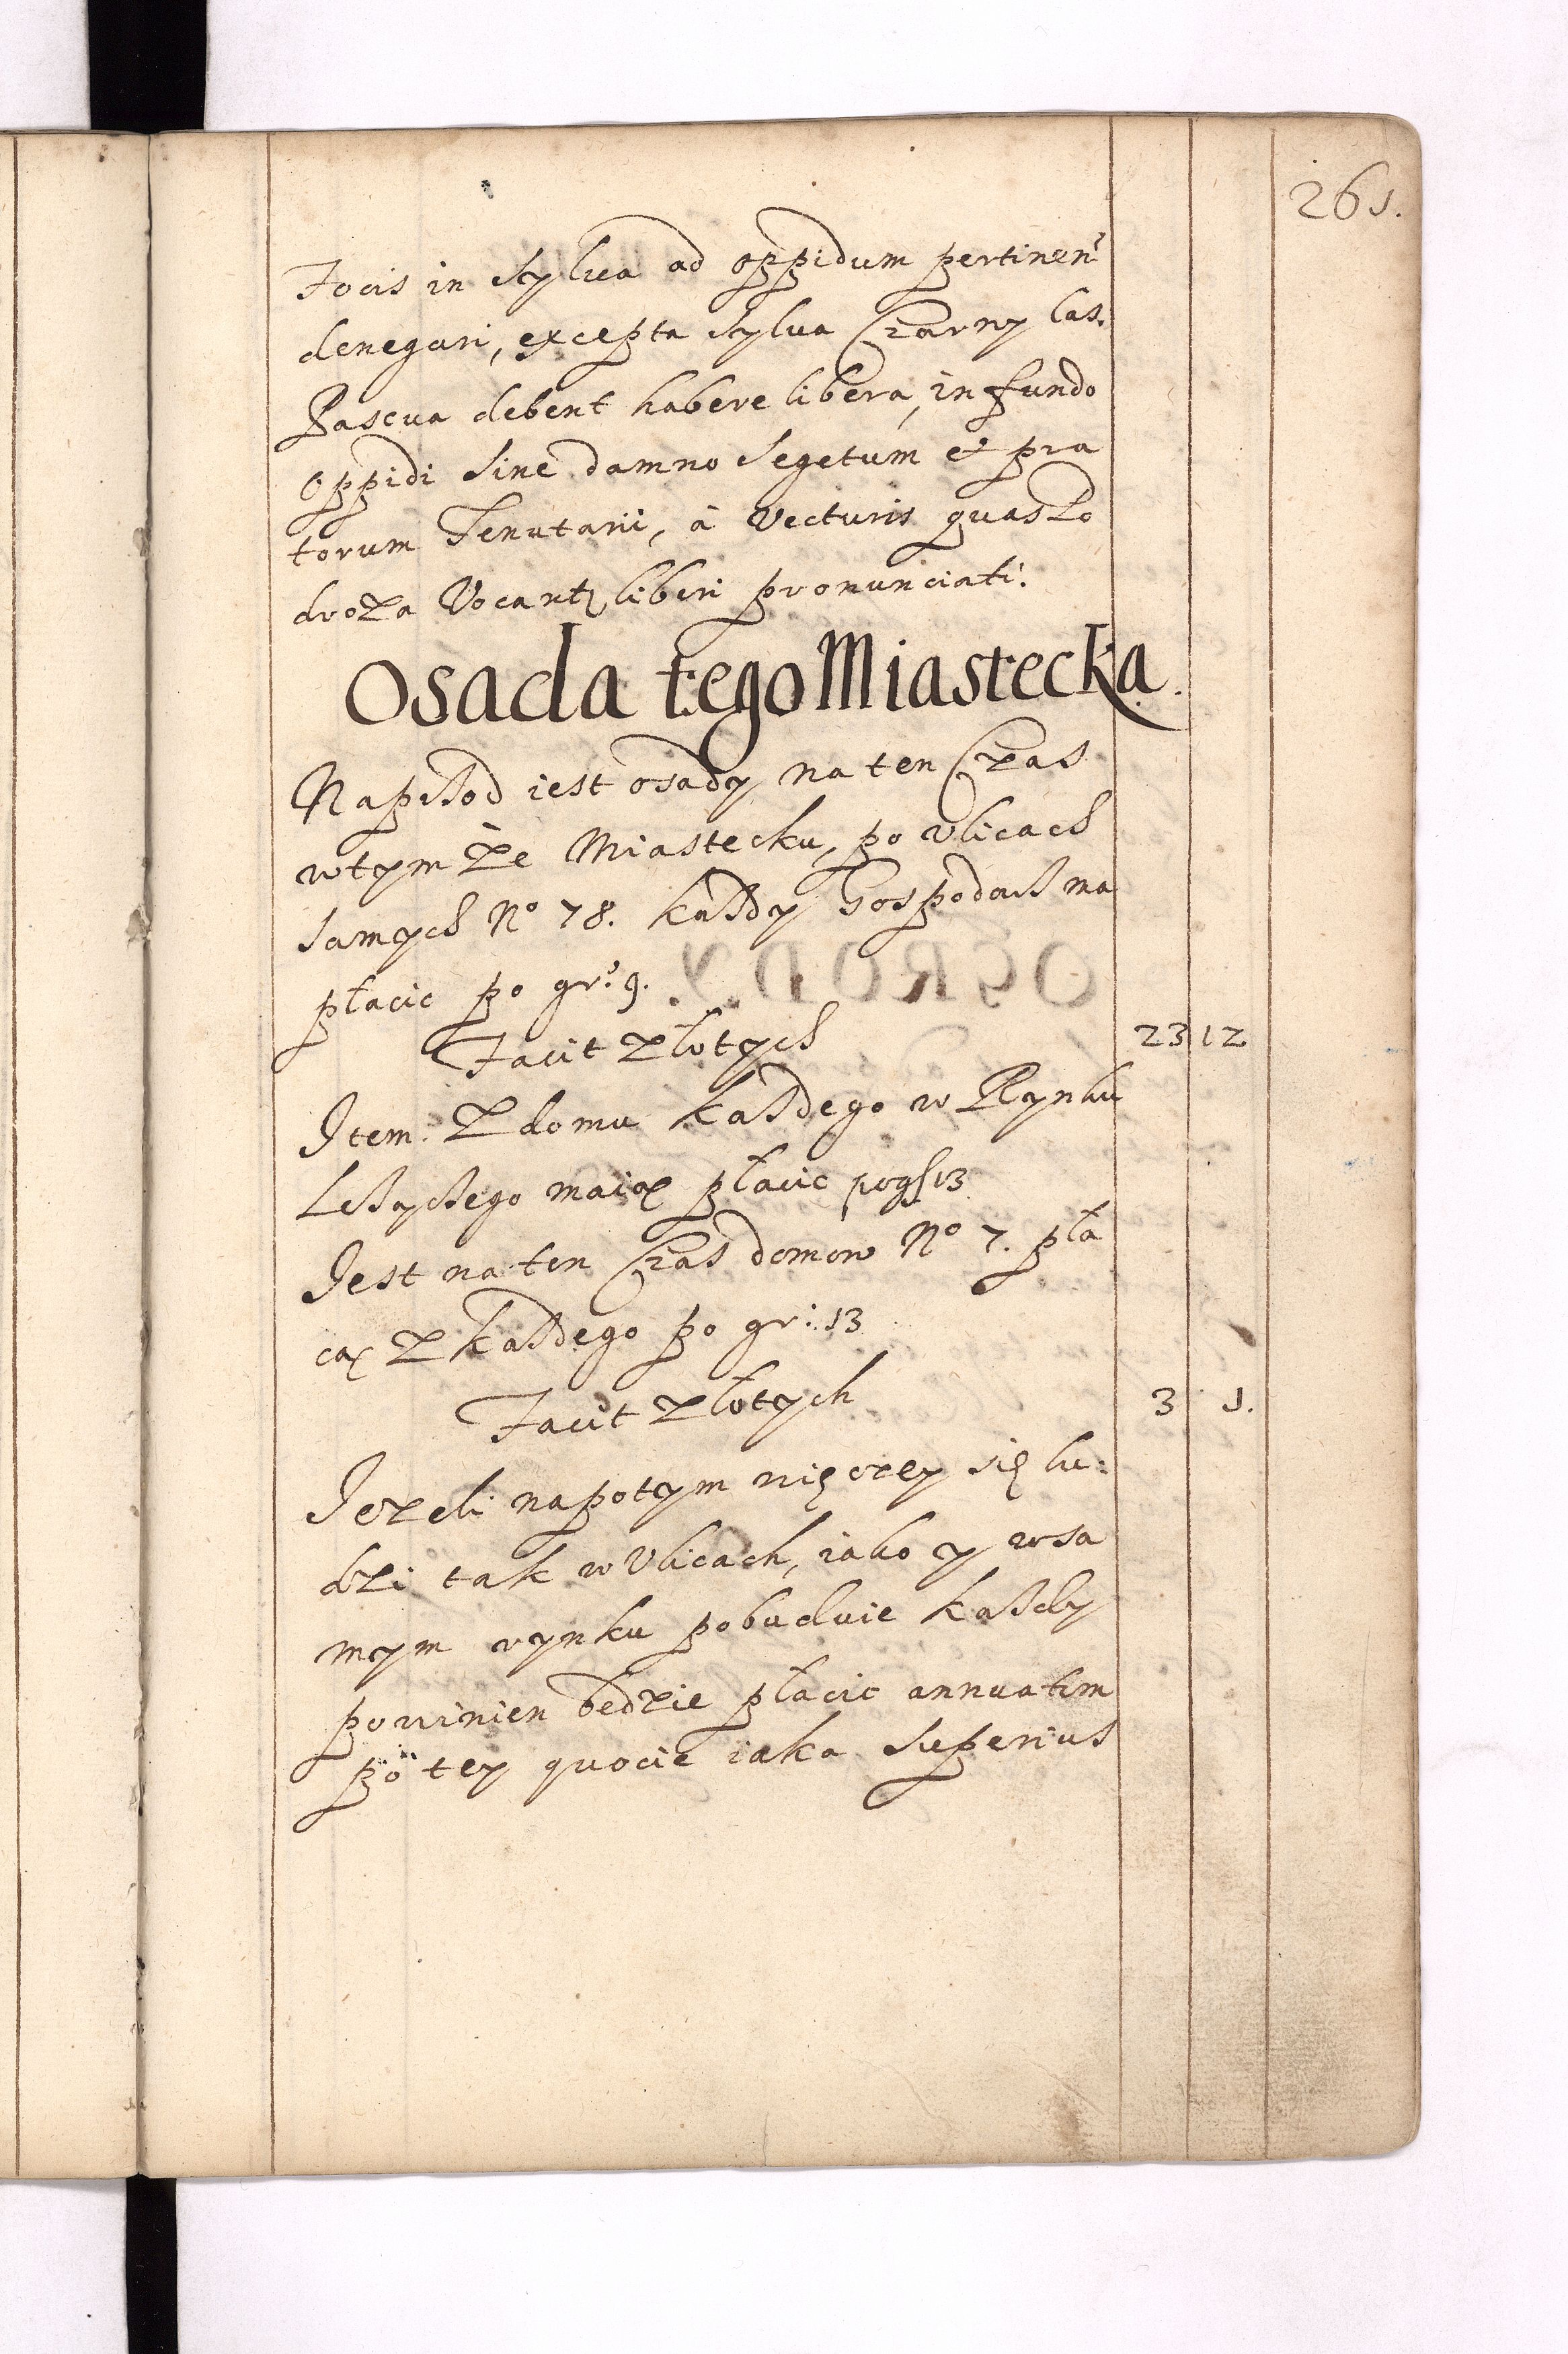 261.
Focis in Sylva ad oppidum pertinen
denegari, excepta sylva Czarny las.
Pascua debent habere libera, in fundo
oppidi sine damno segetum et pra
torum Tenutarii, à Vecturis quas Po
droza Vocant, liberi pronunciati.
Osada tego Miastecka.
Naprzod iest osady na ten Czas
wtym ze Miastecku, po Ulicach
samych No 78. kaszdy Gospodarz ma
płacic po gr: 9.
Facit Złotych 23 12
Item. Z domu kaszdego w Rynku
Lezącego maią płacic po gr 13
Jest na ten Czas domow No 7. pła
cą Z kaszdego po gr: 13
Facit Złotych 3 1.
Jezeli napotym więcey się lu:
dzi tak w Ulicach, iako y wsa
mym rynku pobuduie kaszdy
powinien bedzie płacic annuatim
po tey quocie iaka superius